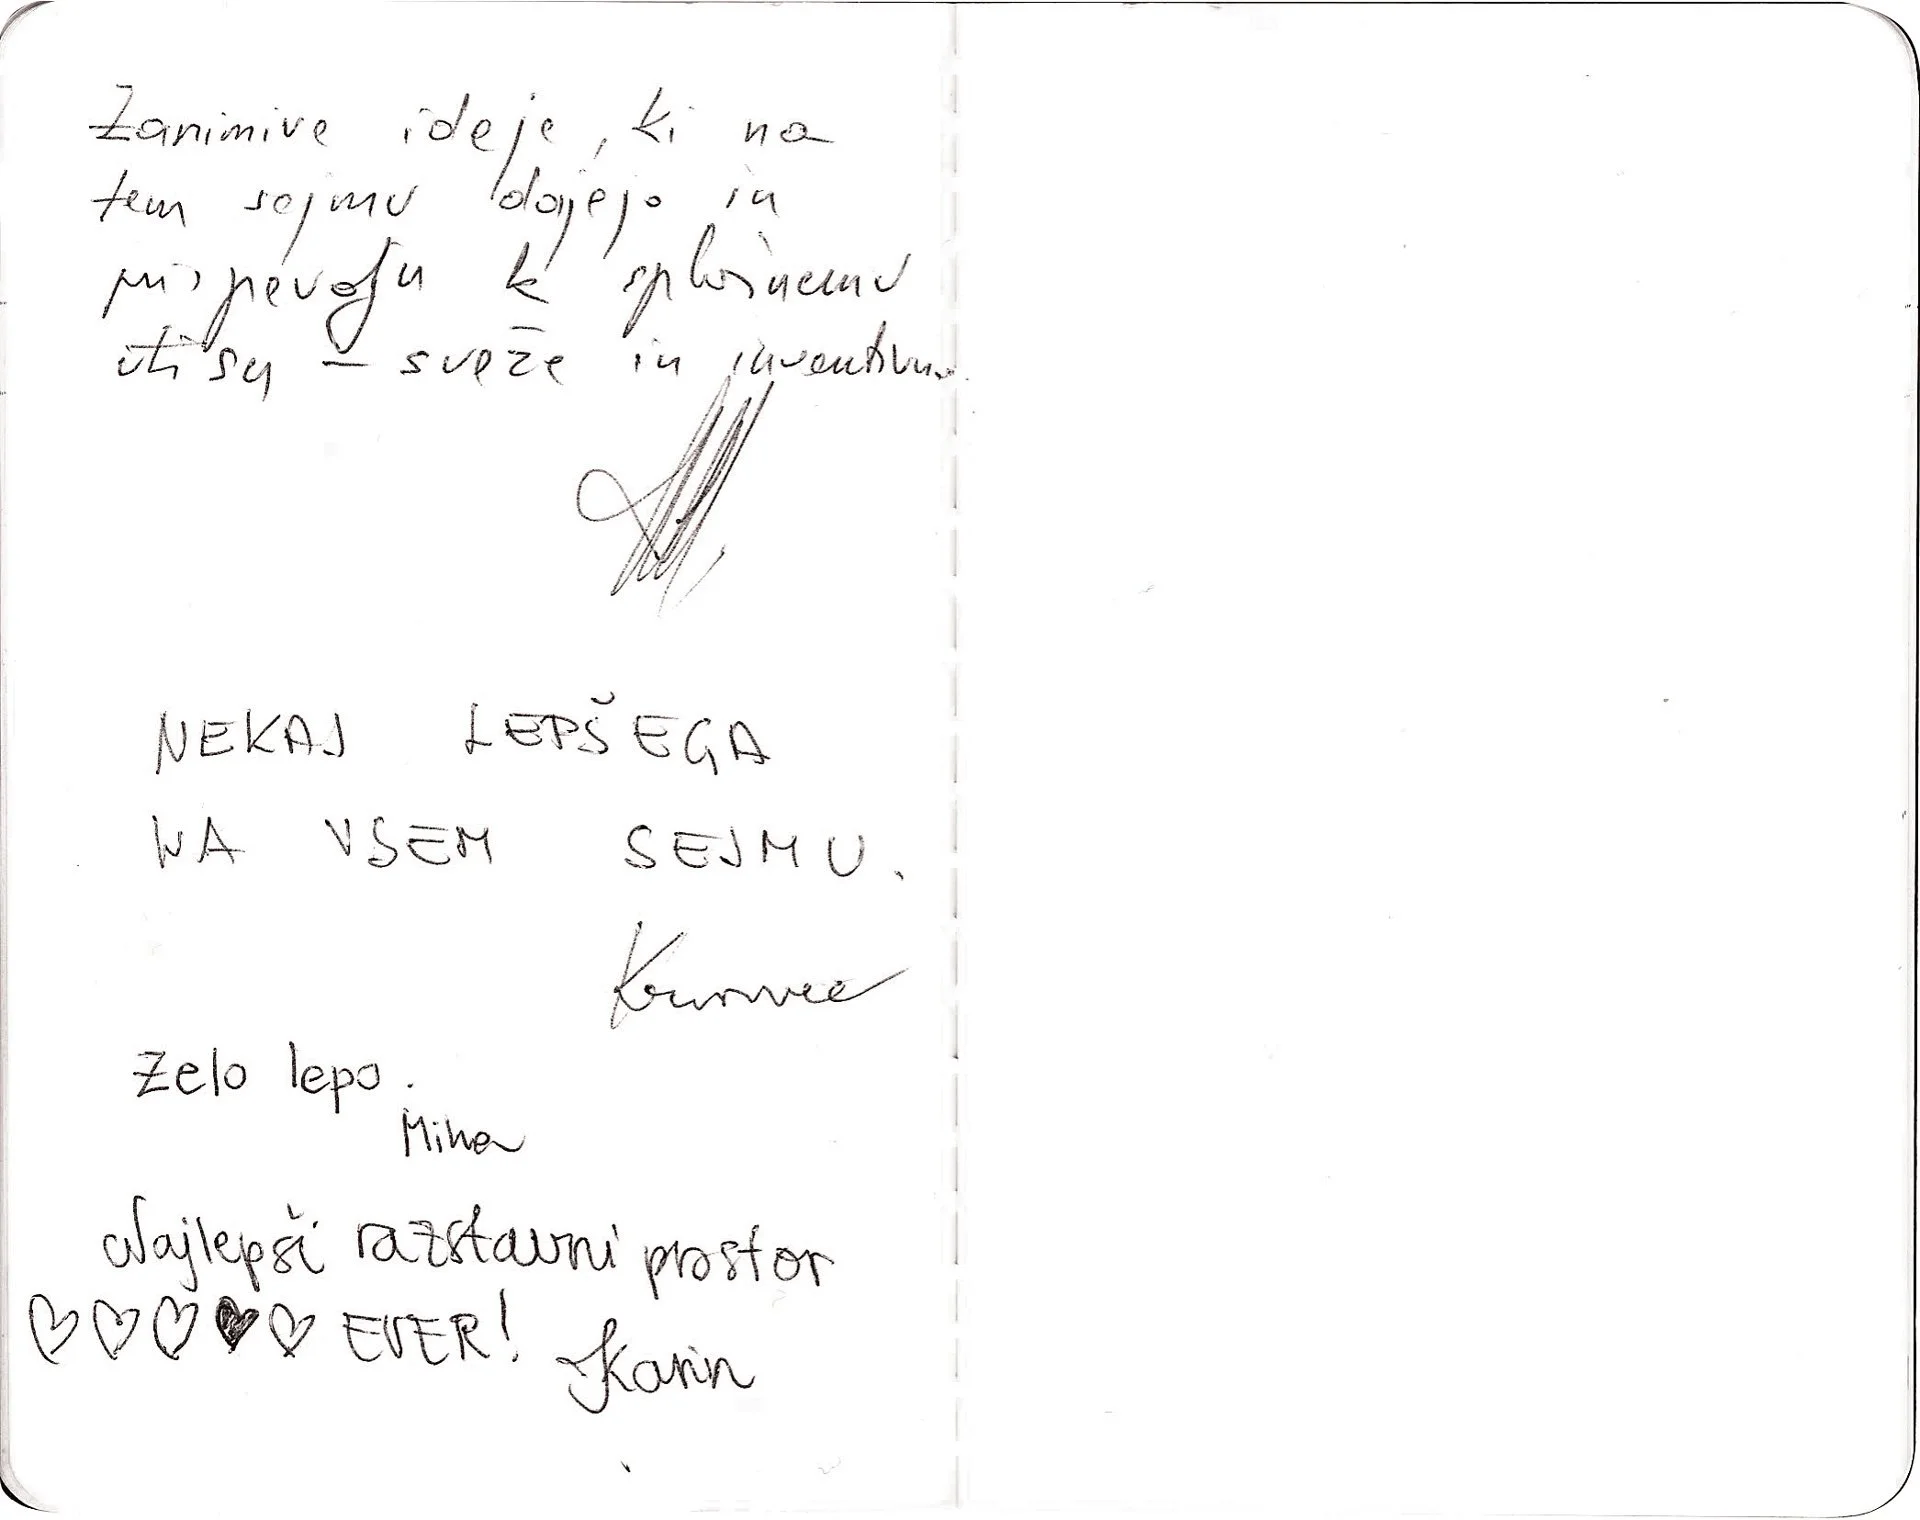 Zanimive ideje, ki na
tem sejmu dajejo in
prispevajo k splošnemu
utisu – sveže in inventivno.
NEKAJ LEPŠEGA
NA VSEM SEJMU.
Zelo lepo.
Miha
Najlepši razstavni prostor
♡♡♡♥♡ EVER!
Karin